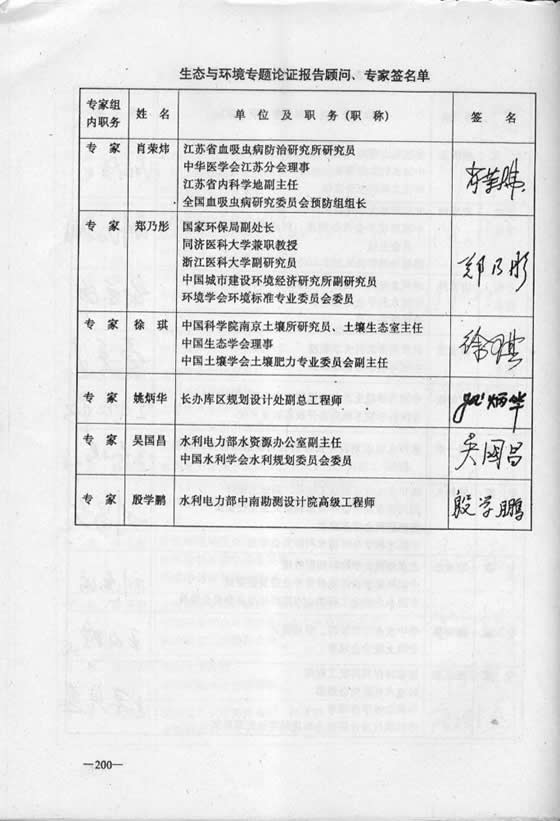 生态与环境专题论证报告顾问、专家签名单
专家组内职务 姓 名 单 位 及 职 务(职 称) 签 名
专 家 肖荣炜 江苏省血吸虫病防治研究所研究员
中华医学会江苏分会理事
江苏省内科学地副主任
全国血吸虫病研究委员会预防组组长
肖荣炜
专 家 郑乃彤 国家环保局副处长
同济医科大学兼职教授
浙江医科大学副研究员
中国城市建设环境经济研究所副研究员
环境学会环境标准专业委员会委员
郑乃彤
专 家 徐 琪 中国科学院南京土壤所研究员、土壤生态室主任
中国生态学会理事
中国土壤学会土壤肥力专业委员会副主任
徐琪
专 家 姚炳华 长办库区规划设计处副总工程师 姚炳华
专 家 吴国昌 水利电力部水资源办公室副主任
中国水利学会水利规划委员会委员
吴国昌
专 家 殷学鹏 水利电力部中南勘测设计院高级工程师 殷学鹏
—200—